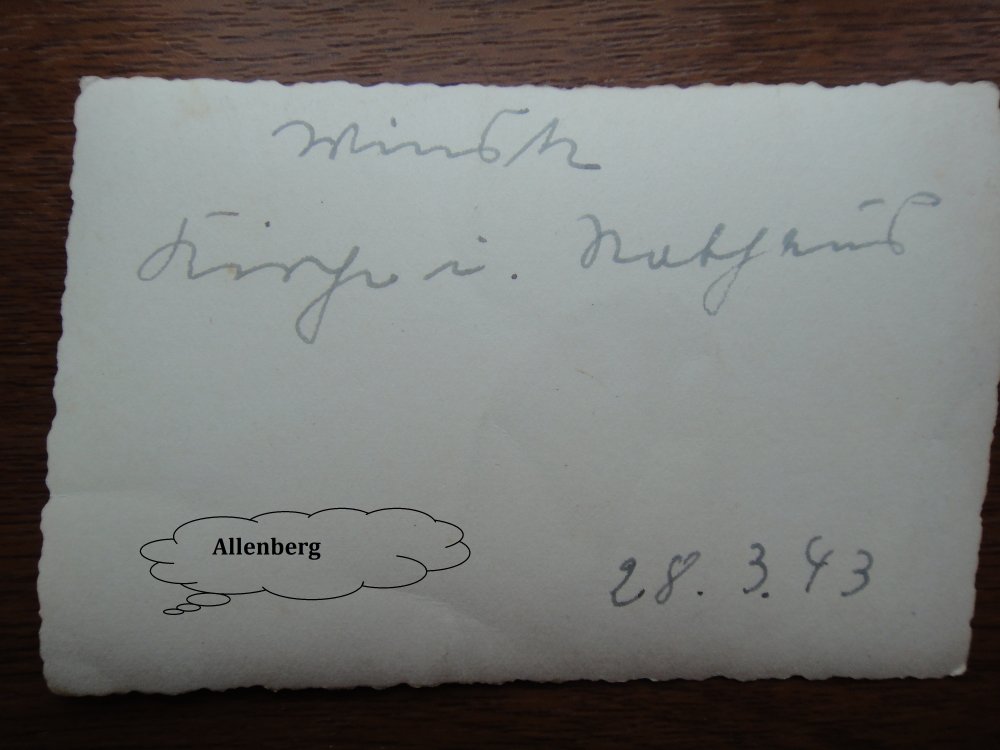 Minsk
Kirche u. Rathaus
Allenberg
28. 3. 43